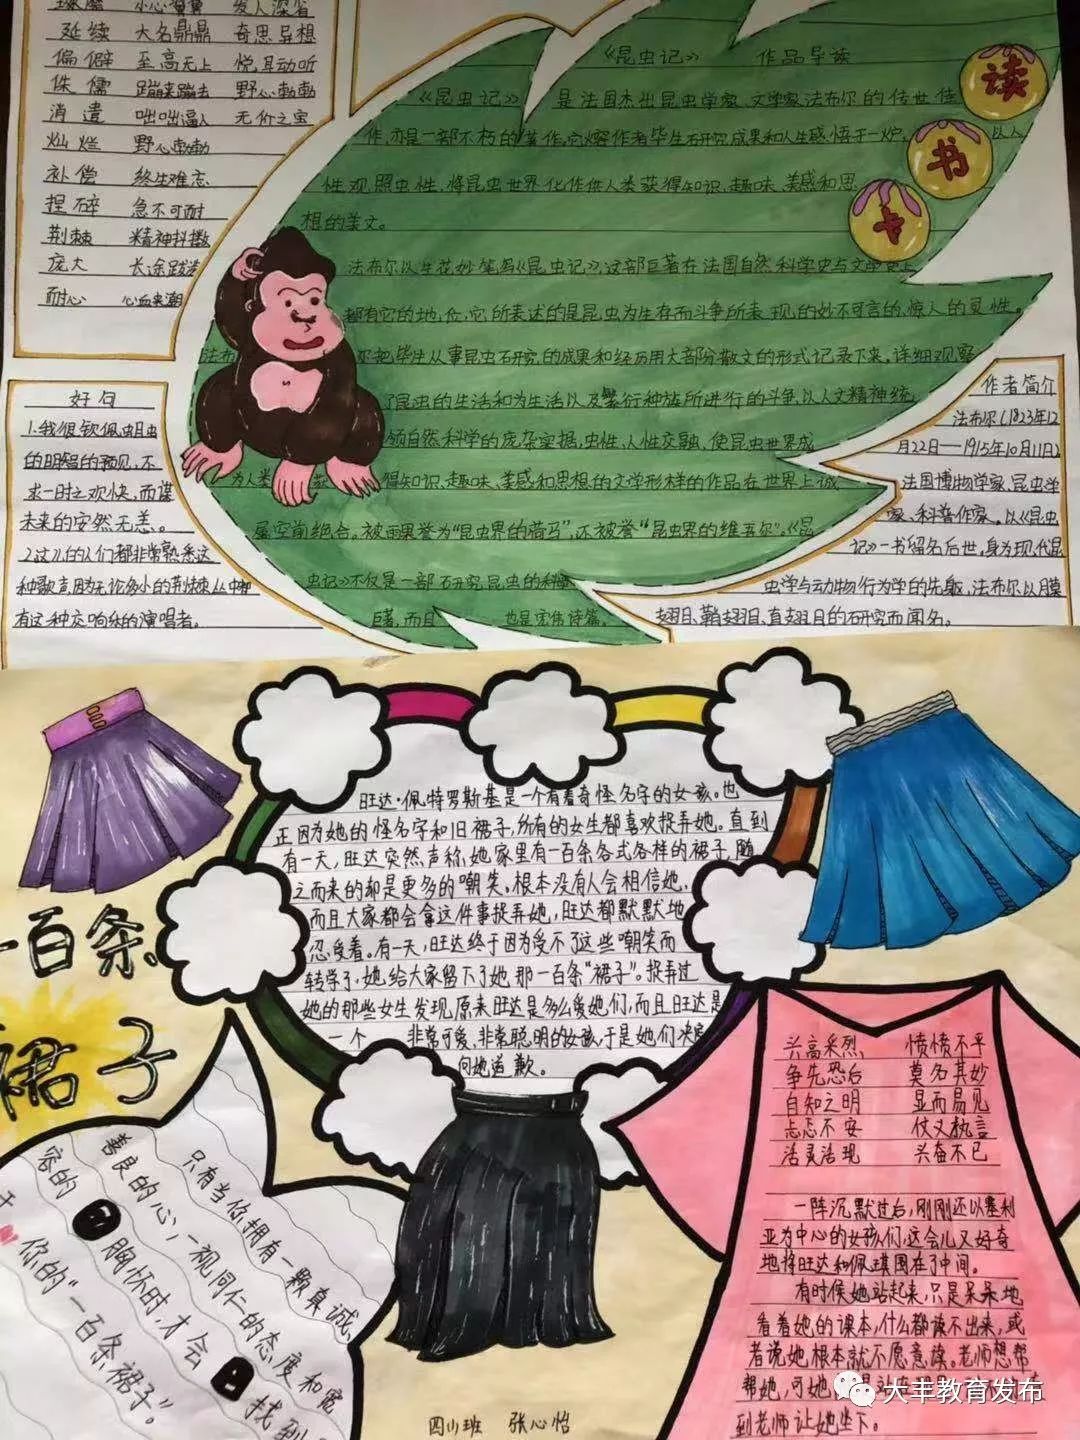 小心翼翼 发人深省
延续 大名鼎鼎 奇思异想
偏僻 至高无上 悦耳动听
侏儒 蹦来蹦去 野心勃勃
消遣 咄咄逼人 无价之宝
灿烂 野心勃勃
补偿 终生难忘
捏碎 急不可耐
荆棘 精神抖擞
庞大 长途跋涉
耐心 心血来潮
读
书
卡
《昆虫记》 作品导读
《昆虫记》 是法国杰出昆虫学家、文学家法布尔的传世佳
作,亦是一部不朽的著作,它熔作者毕生研究成果和人生感悟于一炉, 以人
性观照虫性,将昆虫世界化作供人类获得知识、趣味、美感和思
想的美文。
法布尔以生花妙笔写《昆虫记》,这部巨著在法国自然科学史与文学史上
都有它的地位,它所表达的是昆虫为生存而斗争所表现的妙不可言的,惊人的灵性。
法布 把毕生从事昆虫研究的成果和经历用大部分散文的形式记录下来,详细观察
了昆虫的生活和为生活以及繁衍种族所进行的斗争,以人文精神统
领自然科学的庞杂实据,虫性、人性交融,使昆虫世界成
为人类 获 得知识、趣味、美感和思想的文学形样的作品在世界上诚
属空前绝合。被雨果誉为“昆虫界的荷马”,还被誉“昆虫界的维吾尔”。《昆
虫记》不仅是一部研究昆虫的科学
巨著,而且 也是宏伟诗篇。
好句
1.我很钦佩蛆虫
的明智的预见,不
求一时之欢快,而谋
未来的安然无恙。
2.这儿的人们都非常熟悉这
种歌声,因为无论多小的荆棘丛中都
有这种交响乐的演唱者。
作者简介
法布尔(1823年12
月22日—1915年10月11日)
法国博物学家、昆虫学
家、科普作家。以《昆虫
记》一书留名后世,身为现代昆
虫学与动物行为学的先驱,法布尔以膜
翅目、鞘翅目、直翅目的研究而闻名。
一百条
裙子
旺达·佩特罗斯基是一个有着奇怪名字的女孩。也
正因为她的怪名字和旧裙子,所有的女生都喜欢捉弄她。直到
有一天,旺达突然声称,她家里有一百条各式各样的裙子,随
之而来的却是更多的嘲笑。根本没有人会相信她,
而且大家都会拿这件事捉弄她,旺达都默默地
忍受着。有一天,旺达终于因为受不了这些嘲笑而
转学了,她给大家留下了她那一百条“裙子”。捉弄过
她的那些女生发现,原来旺达是多么爱她们,而且旺达是
一个 非常可爱、非常聪明的女孩,于是她们决定
向她道歉。
只有当你拥有一颗真诚、
善良的心,一视同仁的态度和宽
容的 胸怀时,才会 找到
你的“一百条裙子”。
四(1)班 张心怡
兴高采烈 愤愤不平
争先恐后 莫名其妙
自知之明 显而易见
忐忑不安 仗义执言
活灵活现 兴奋不已
一阵沉默过后,刚刚还以塞利
亚为中心的女孩们,这会儿又好奇
地将旺达和佩琪围在了中间。
有时候她站起来,只是呆呆地
看着她的课本,什么都读不出来,或
者说她根本就不愿意读。老师想帮
帮她,可她
到老师让她坐下。
大丰教育发布